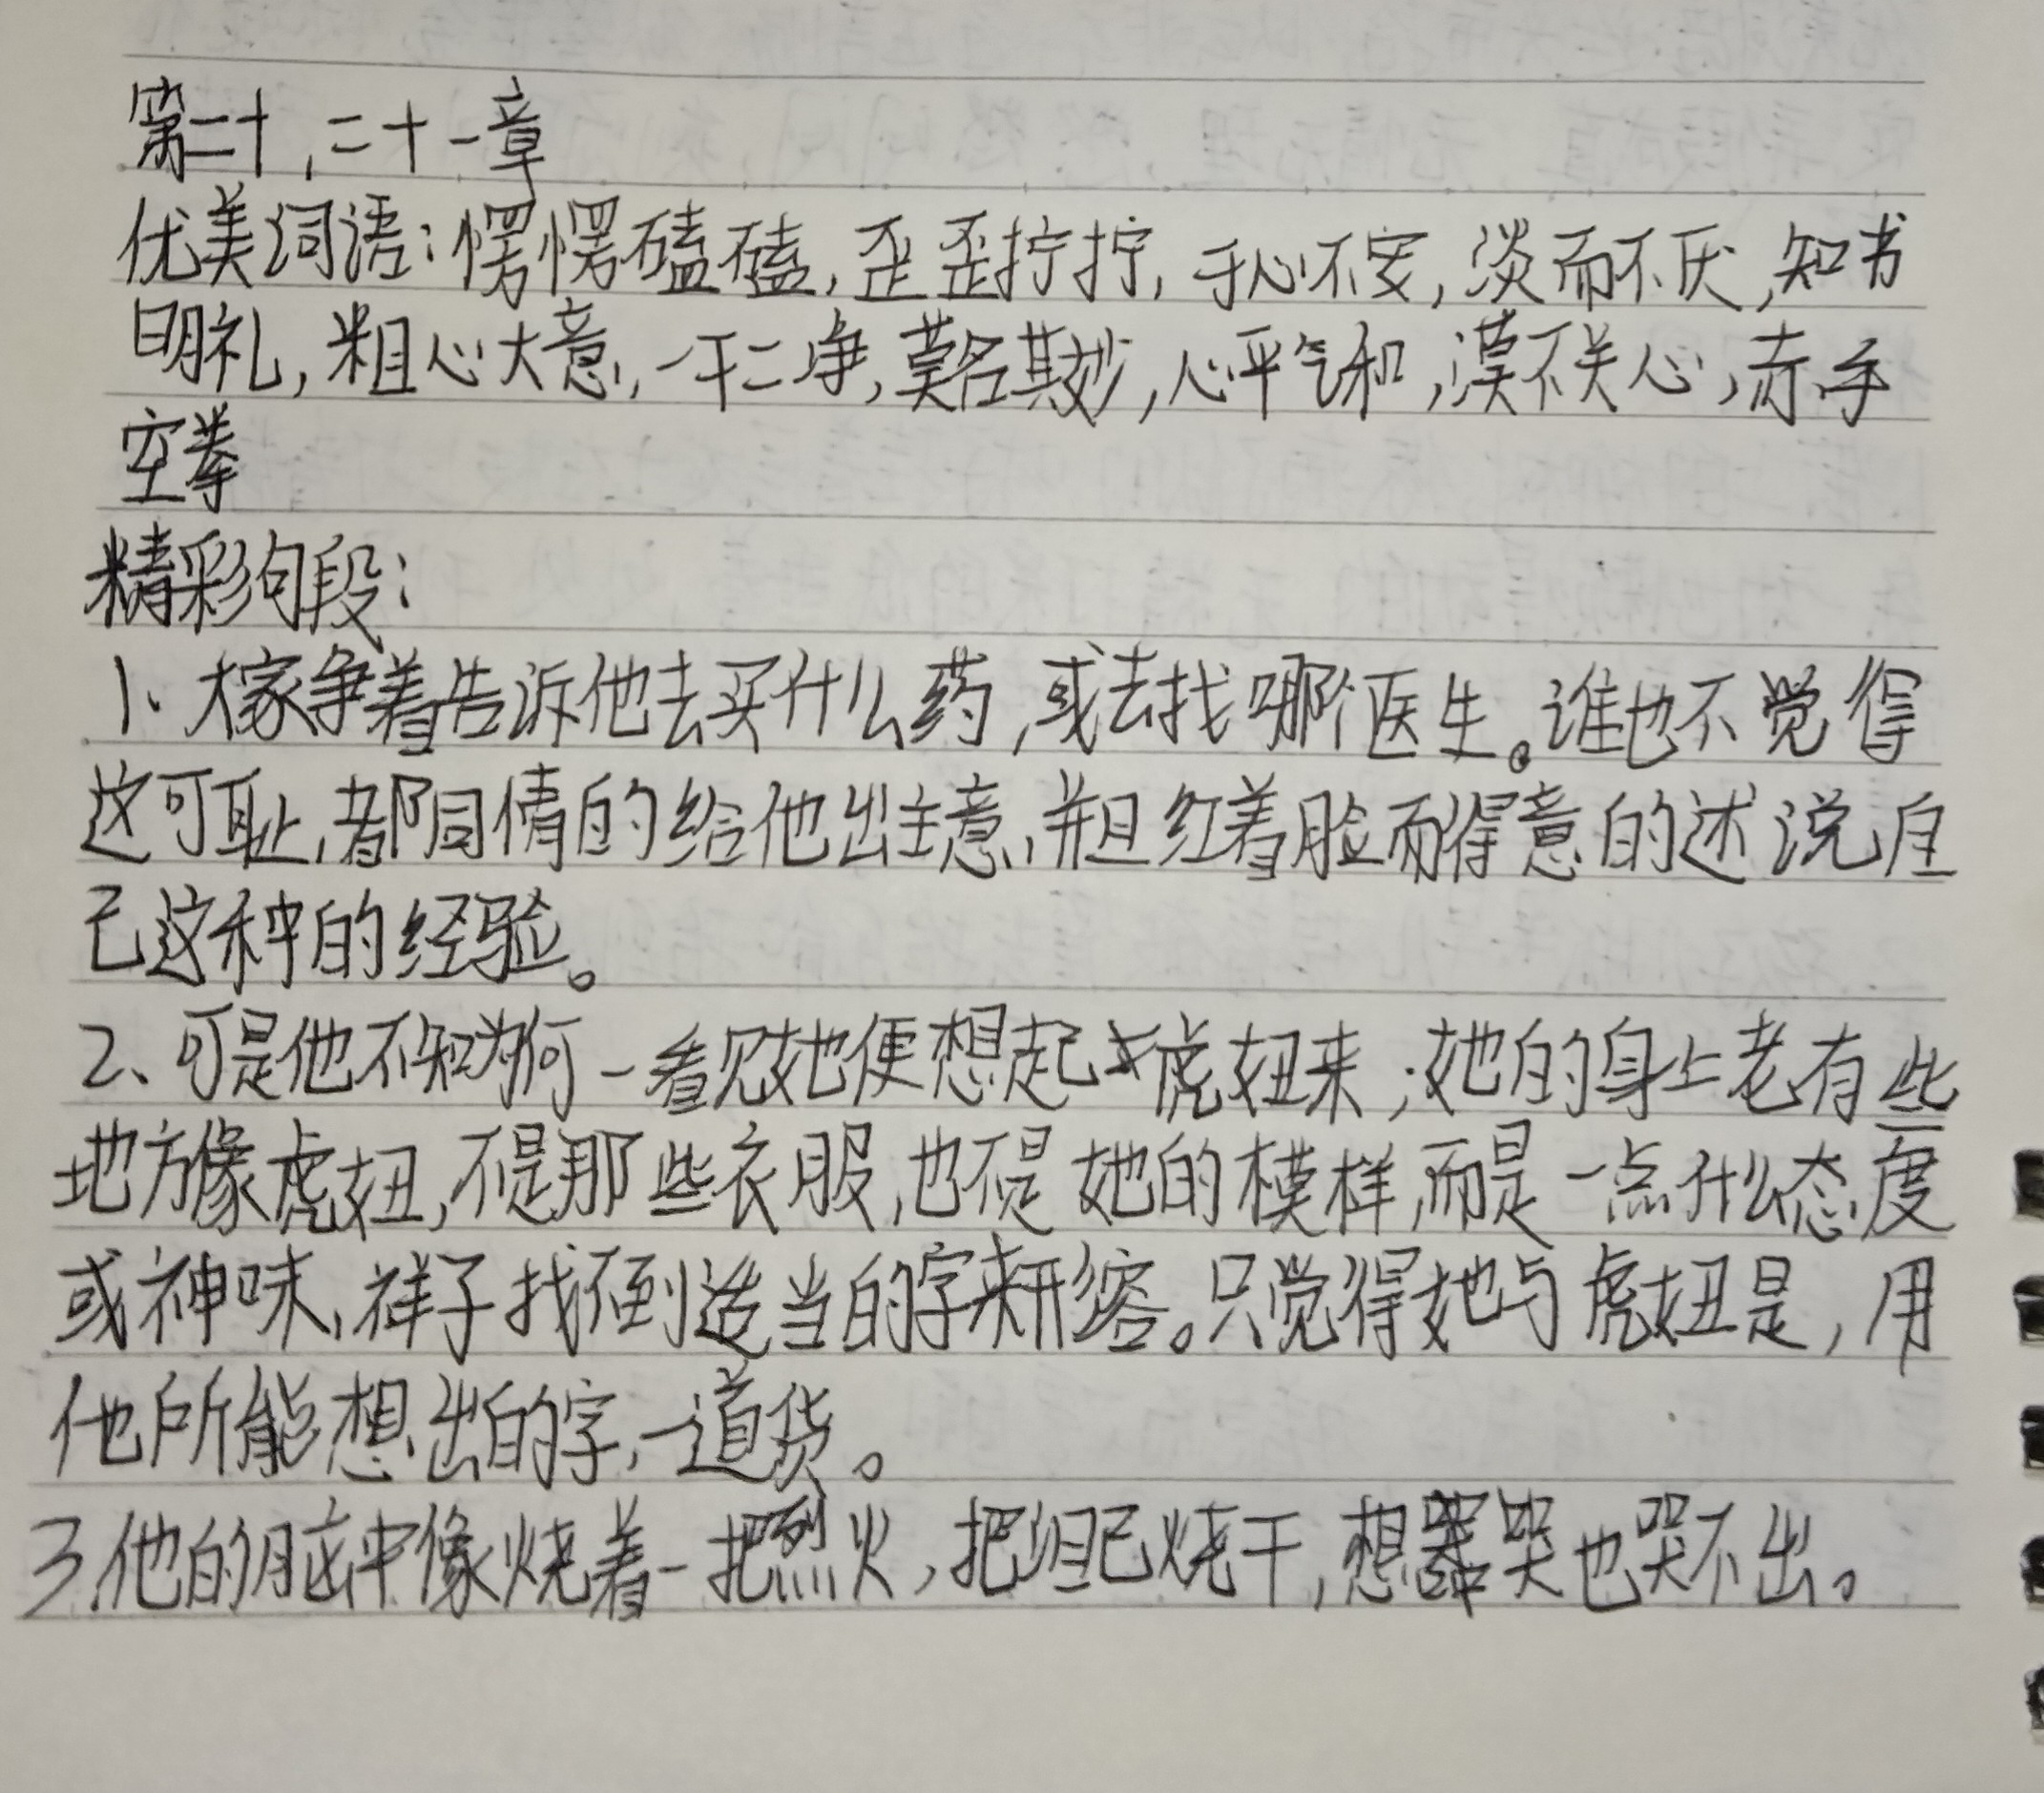 第二十,二十一章
优美词语:愣愣磕磕,歪歪拧拧,于心不安,淡而不厌,知书
明礼,粗心大意,一干二净,莫名其妙,心平气和,漠不关心,赤手
空拳
精彩句段:
1、大家争着告诉他去买什么药,或去找哪个医生。谁也不觉得
这可耻,都同情的给他出主意,并且红着脸而得意的述说自
己这种的经验。
2、可是他不知为何一看见她便想起虎妞来;她的身上老有些
地方像虎妞,不是那些衣服,也不是她的模样,而是一点什么态度
或神味,祥子找不到适当的字来形容。只觉得她与虎妞是,用
他所能想出的字,一道货。
3.他的脑中像烧着一把烈火,把泪已烧干,想哭也哭不出。